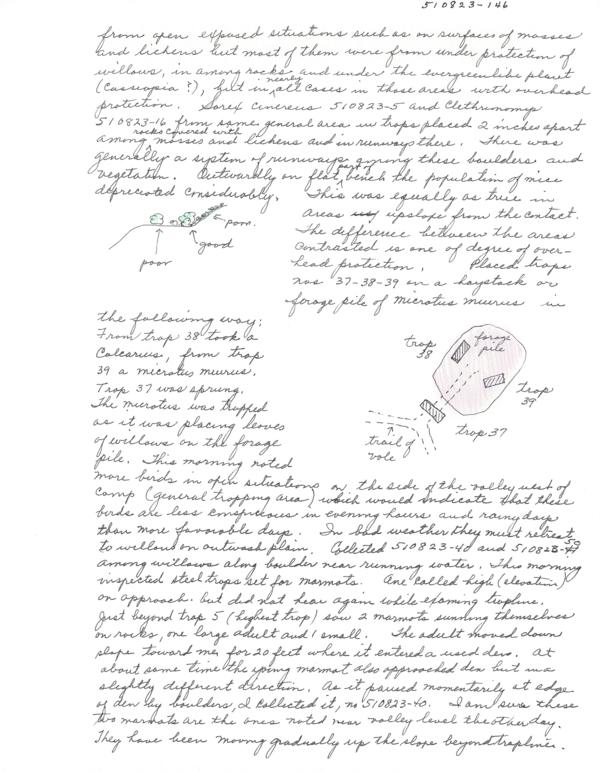 510823-146
from open exposed situations such as on surfaces of mosses
and lichens but most of them were from under protection of
willows, in among rocks and under the evergreenlike plant
(Cassiopia ?), but in nearly all cases in those areas with overhead
protection. Sorex Cinereus 510823-5 and Clethrionomys
510823-16 from same general area in traps placed 2 inches apart
among rocks covered with mosses and lichens and in runways there. There was
generally a system of runways among these boulders and
vegetation. Outwardly on flat part of bench the population of mice
depreciated considerably. This was equally as true in
areas upslope from the contact.
The difference between the areas
contrasted is one of degree of over-
head protection. Placed traps
nos 37-38-39 on a haystack or
forage pile of microtus miurus in
poor
good
poor
the following way:
From trap 38 took a
Calcarius, from trap
39 a microtus miurus.
Trap 37 was sprung.
The microtus was trapped
as it was placing leaves
of willows on the forage
pile. This morning noted
trap 38
forage pile
trap 39
trap 37
trail of vole
more birds in open situations on the side of the valley west of
Camp (general trapping area) which would indicate that these
birds are less conspicuous in evening hours and rainy days
than more favorable days. In bad weather they must retreat
to willows on outwash plain. Collected 510823-40 and 510823-
among willows along boulder near running water. This morning
inspected steel traps set for marmots. One called high (elevation)
on approach but did not hear again while examing trapline.
Just beyond trap 5 (highest trap) saw 2 marmots sunning themselves
on rocks, one large adult and 1 small. The adult moved down
slope toward me, for 20 feet where it entered a used den. At
about same time the young marmot also approached den but in a
slightly different direction. As it paused momentarily at edge
of den by boulders, I collected it, no 510823-40. I am sure these
two marmots are the ones noted near valley level the other day.
They have been moving gradually up the slope beyond trapline.